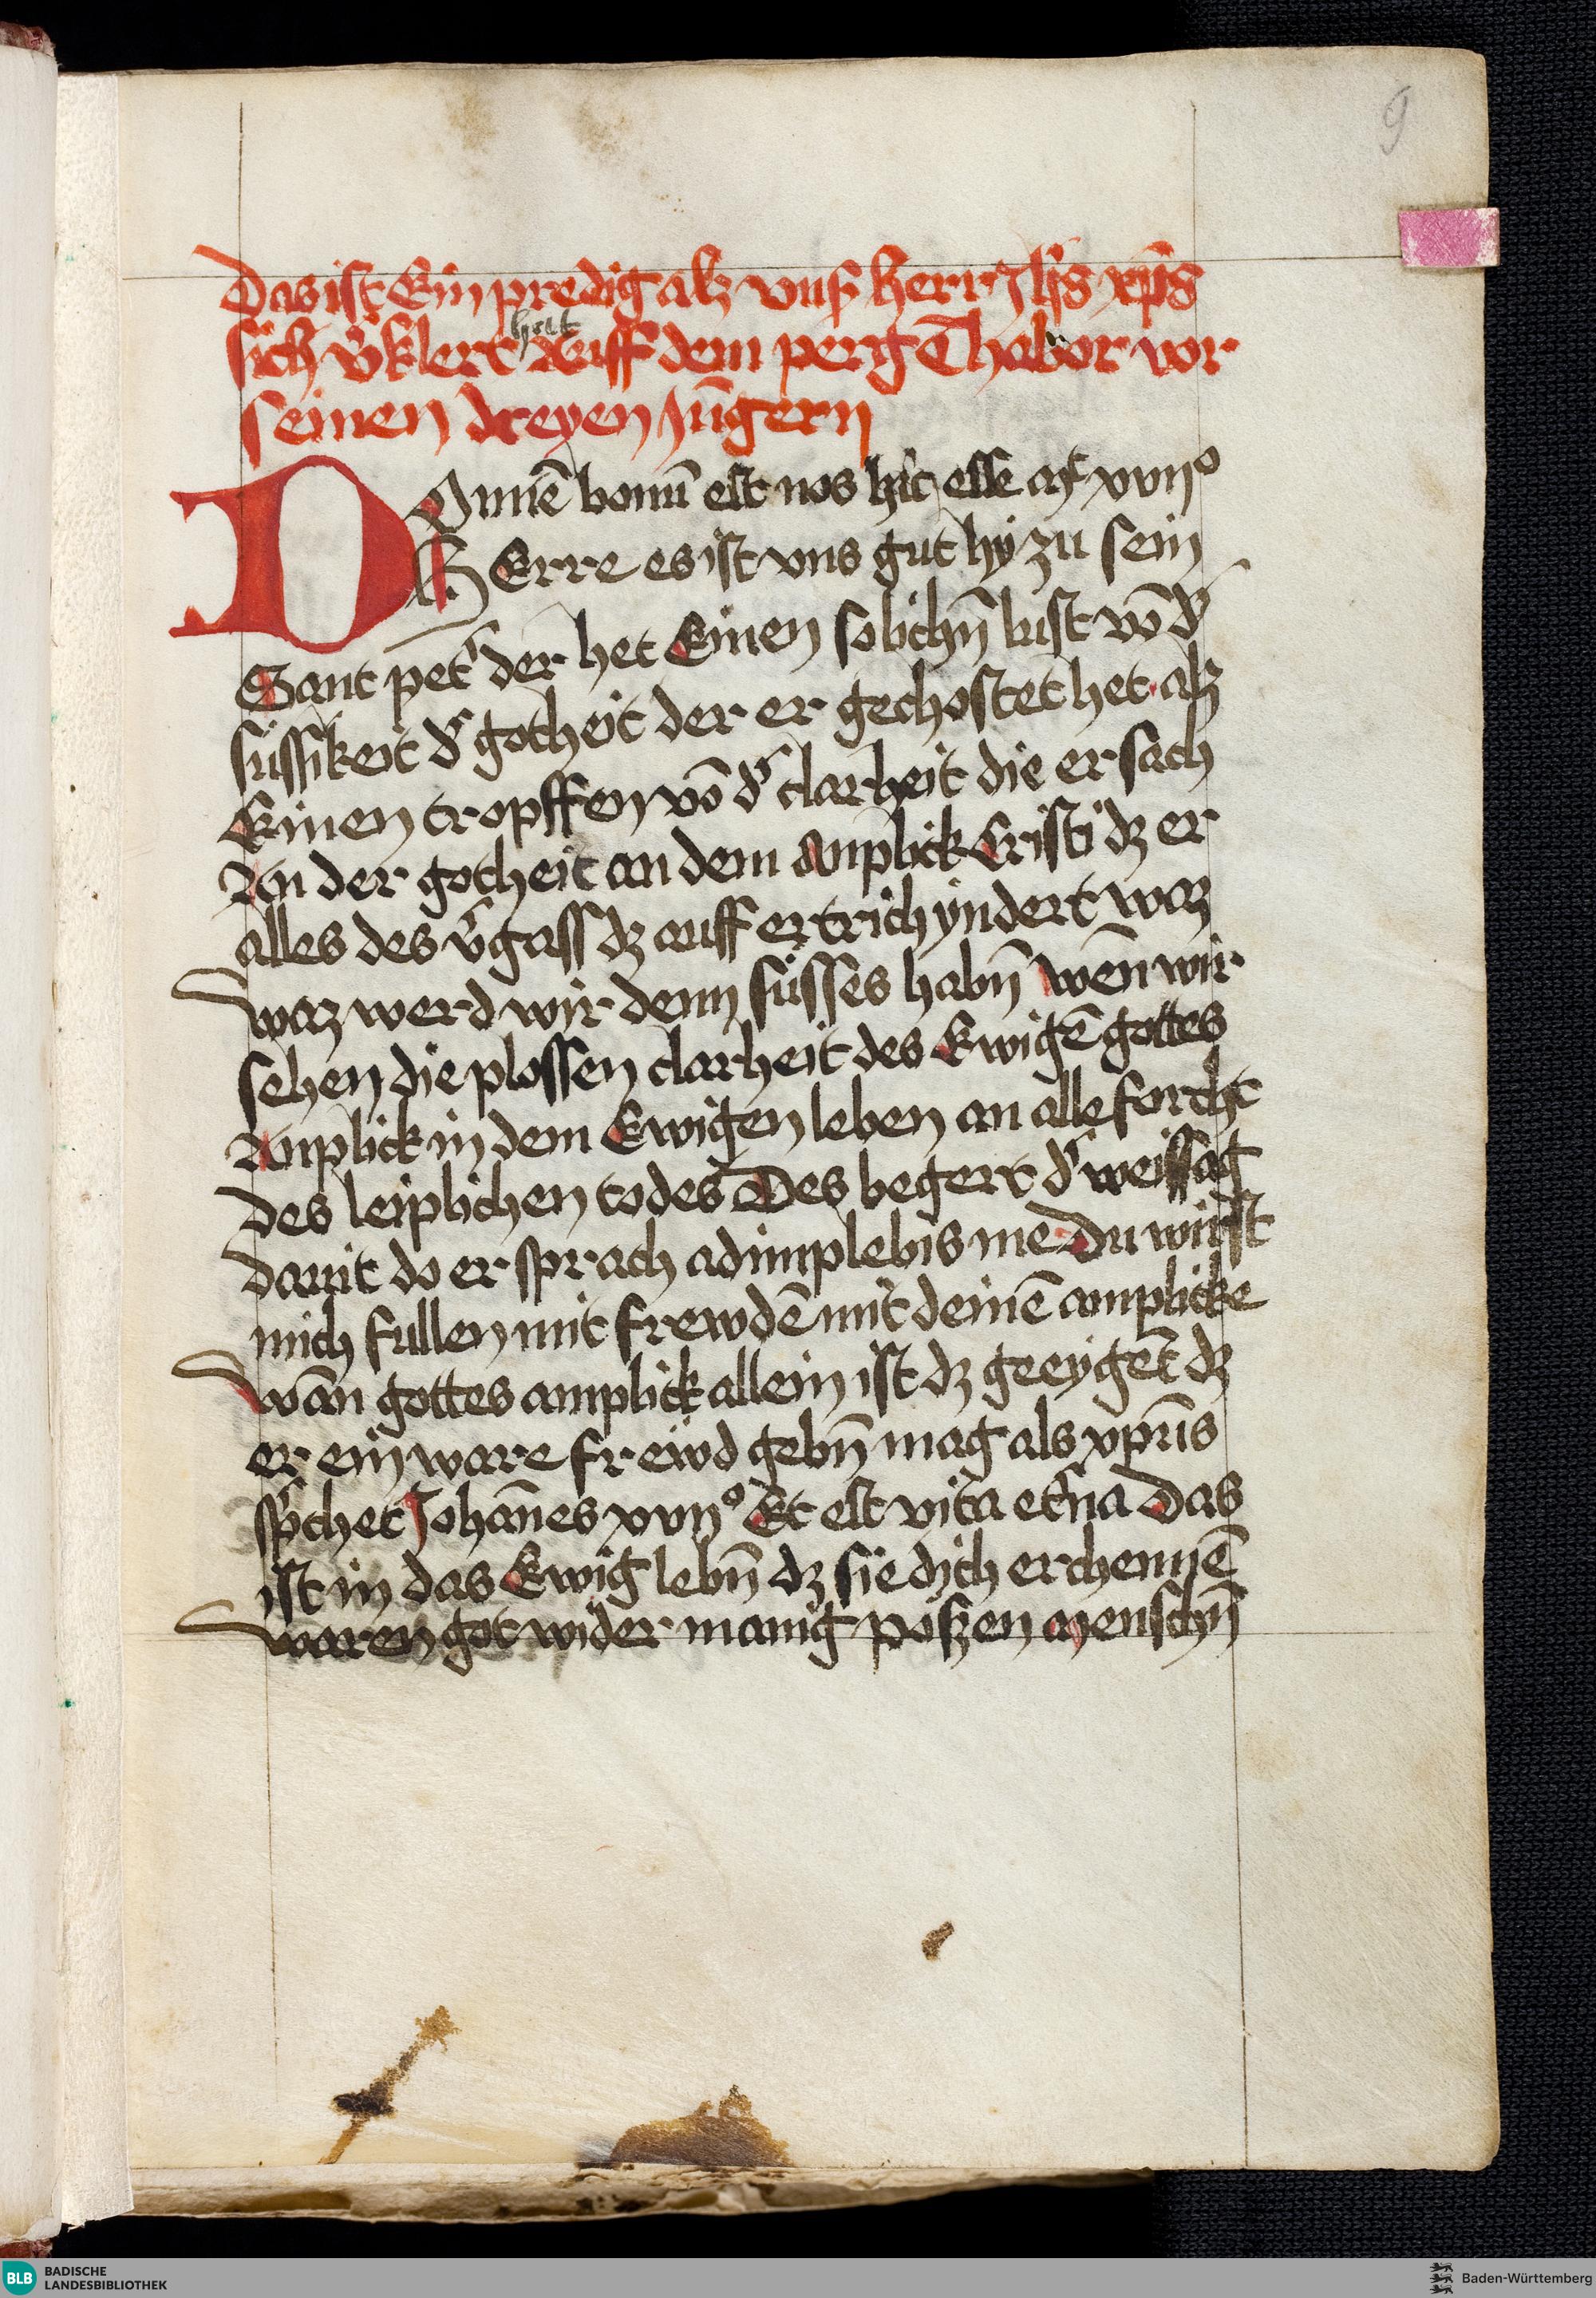 9
Das ist Ein predig alz vnsz herr Jhs xps
sich v̉klert hat Auff dem perg Thabor vor
seinen dreyen Jūgern
DOminē bonū est nos hic esse mt̉ xvijº
HErre es ist vns gut hÿ zu sein
Sant pet̉ der het Einen solichn̄ lust vō d̉
süssikeit d̉ gotheit der er gechostet het alz
Einen tropffen vō d̉ clarheit die er sach
An der gotheit an dem Anplick Cristi dz er
alles des v̉gass dz auff ertrich yndert waz
waz werd wir denn süsses habn̄ wēn wir
sehen die plossen clarheit des Ewigē gottes
Anplick in dem Ewigen leben an alle forcht
des leiplichen todes Des begert d̉ weissag
damit do er sprach adimplebis me Du wirst
mich fullen mit frewdē mit deinē anplicke
wān gottes anplick allein ist dz geeygēt dz
er ein ware frewd gebn̄ mag als xpūs
sp̉chet Johānes xvijº Et est vita et̉na Das
ist in das Ewig lebn̄ dz sie dich erchennē
waren got wider manig pöszen menschn̄
BLB BADISCHE
LANDESBIBLIOTHEK
Baden-Württemberg